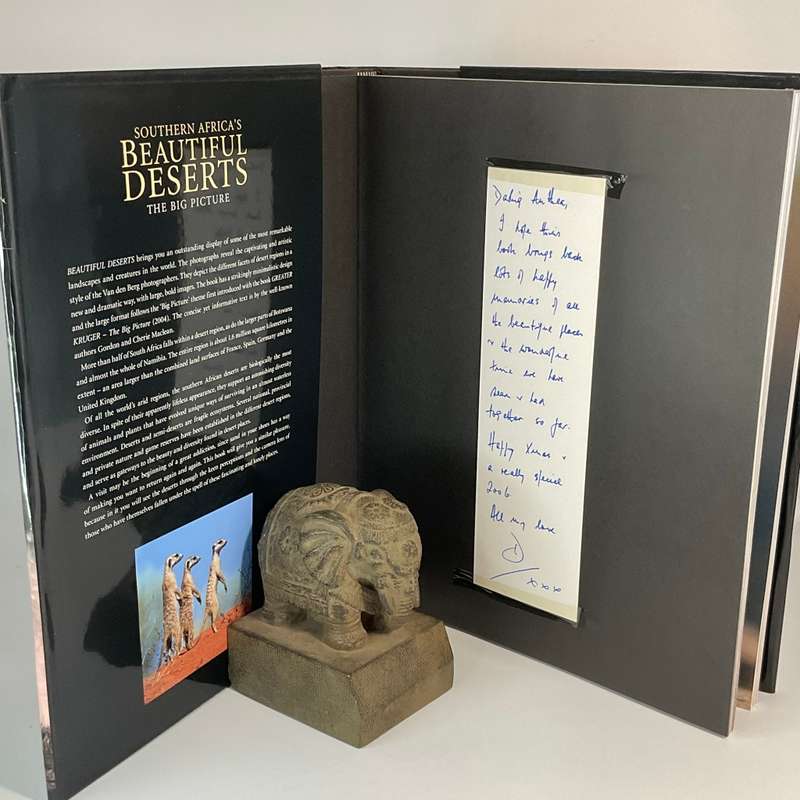 SOUTHERN AFRICA'S
BEAUTIFUL
DESERTS
THE BIG PICTURE
BEAUTIFUL DESERTS brings you an outstanding display of some of the most remarkable
landscapes and creatures in the world. The photographs reveal the captivating and artistic
style of the Van den Berg photographers. They depict the different facets of desert regions in a
new and dramatic way, with large, bold images. The book has a strikingly minimalistic design
and the large format follows the 'Big Picture' theme first introduced with the book GREATER
KRUGER – The Big Picture (2004). The concise yet informative text is by the well known
authors Gordon and Cherie Maclean.
More than half of South Africa falls within a desert region, as do the larger parts of Botswana
and almost the whole of Namibia. The entire region is about 1.6 million square kilometres in
extent – an area larger than the combined land surfaces of France, Spain, Germany and the
United Kingdom.
Of all the world's arid regions, the southern African deserts are biologically the most
diverse. In spite of their apparently lifeless appearance, they support an astonishing diversity
of animals and plants that have evolved unique ways of surviving in an almost waterless
environment. Deserts and semi-deserts are fragile ecosystems. Several national, provincial
and private nature and game reserves have been established in the different desert regions,
and serve as gateways to the beauty and diversity found in desert places.
A visit may be the beginning of a great addiction, since sand in your shoes has a way
of making you want to return again and again. This book will give you a similar pleasure,
because in it you will see the deserts through the keen perception and the camera lens of
those who have themselves fallen under the spell of these fascinating and lonely places.
Darling
I hope this
book brings back
lots of happy
memories of all
the beautiful places
& the wonderful
time we have
seen & had
together so far.
Happy Xmas &
a really special
2006
All my love
D
xxxx